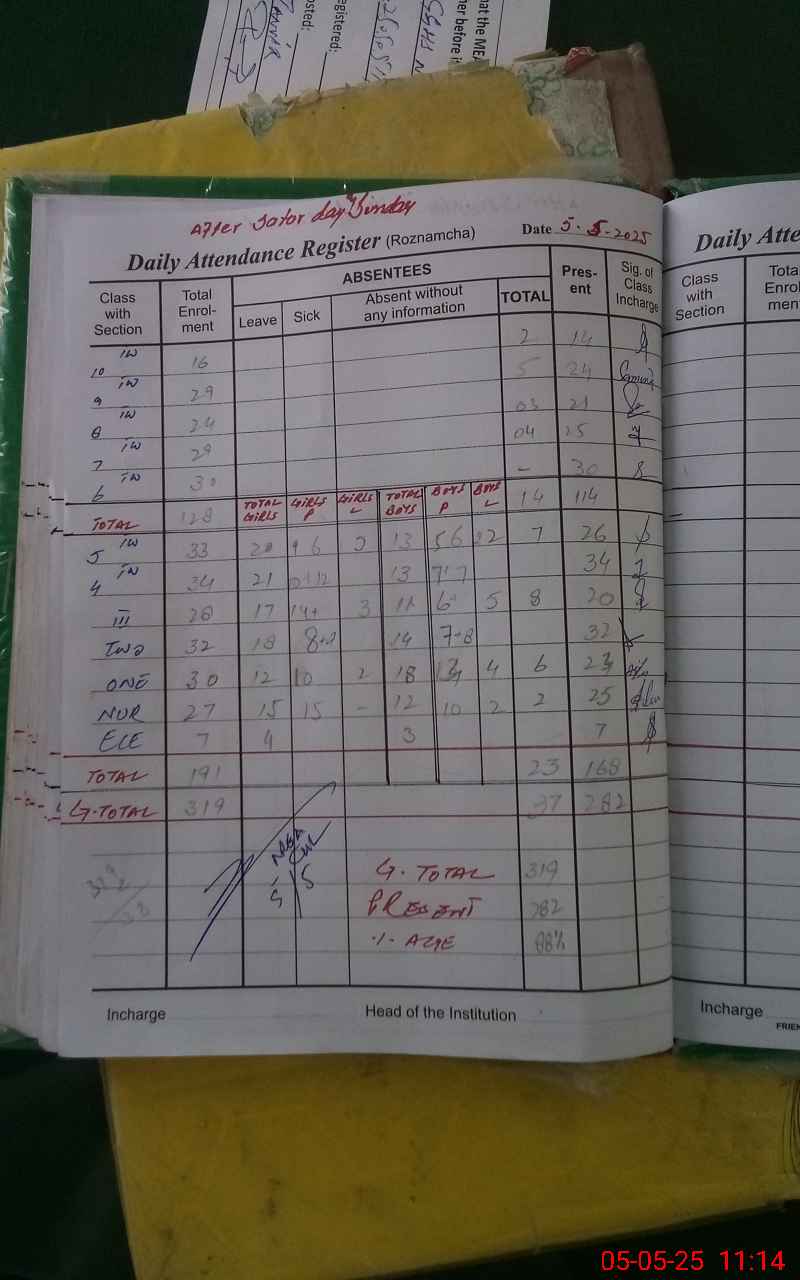 hat the MEA
her before i
GGHS N
egistered:
osted:
TANVIR
After Sator day Sunday
Daily Attendance Register (Roznamcha) Date 5-5-2025
Class with Section Total Enrol-ment ABSENTEES Pres-ent Sig. of Class Incharge
Leave Sick Absent without any information TOTAL
10 16 2 14
9 29 5 24
8 24 03 21
7 29 04 25
6 30 - 30
TOTAL 128 TOTAL GIRLS GIRLS P GIRLS L TOTAL BOYS BOYS P BOYS L 14 114
5 33 20 13 7 26
4 34 21 13 34
III 28 17 3 11 5 8 20
TWO 32 18 14 7+8 32
ONE 30 12 10 2 18 4 6
NUR 27 15 15 - 12 10 2 2 25
ECE 7 4 3 7
TOTAL 191 23 168
G.TOTAL 319 37 282
5/5
G. TOTAL 319
PRESENT 282
%AGE 88%
Incharge Head of the Institution
Daily Atte
Class with Section Tota Enrol men
Incharge
FRIEN
05-05-25 11:14